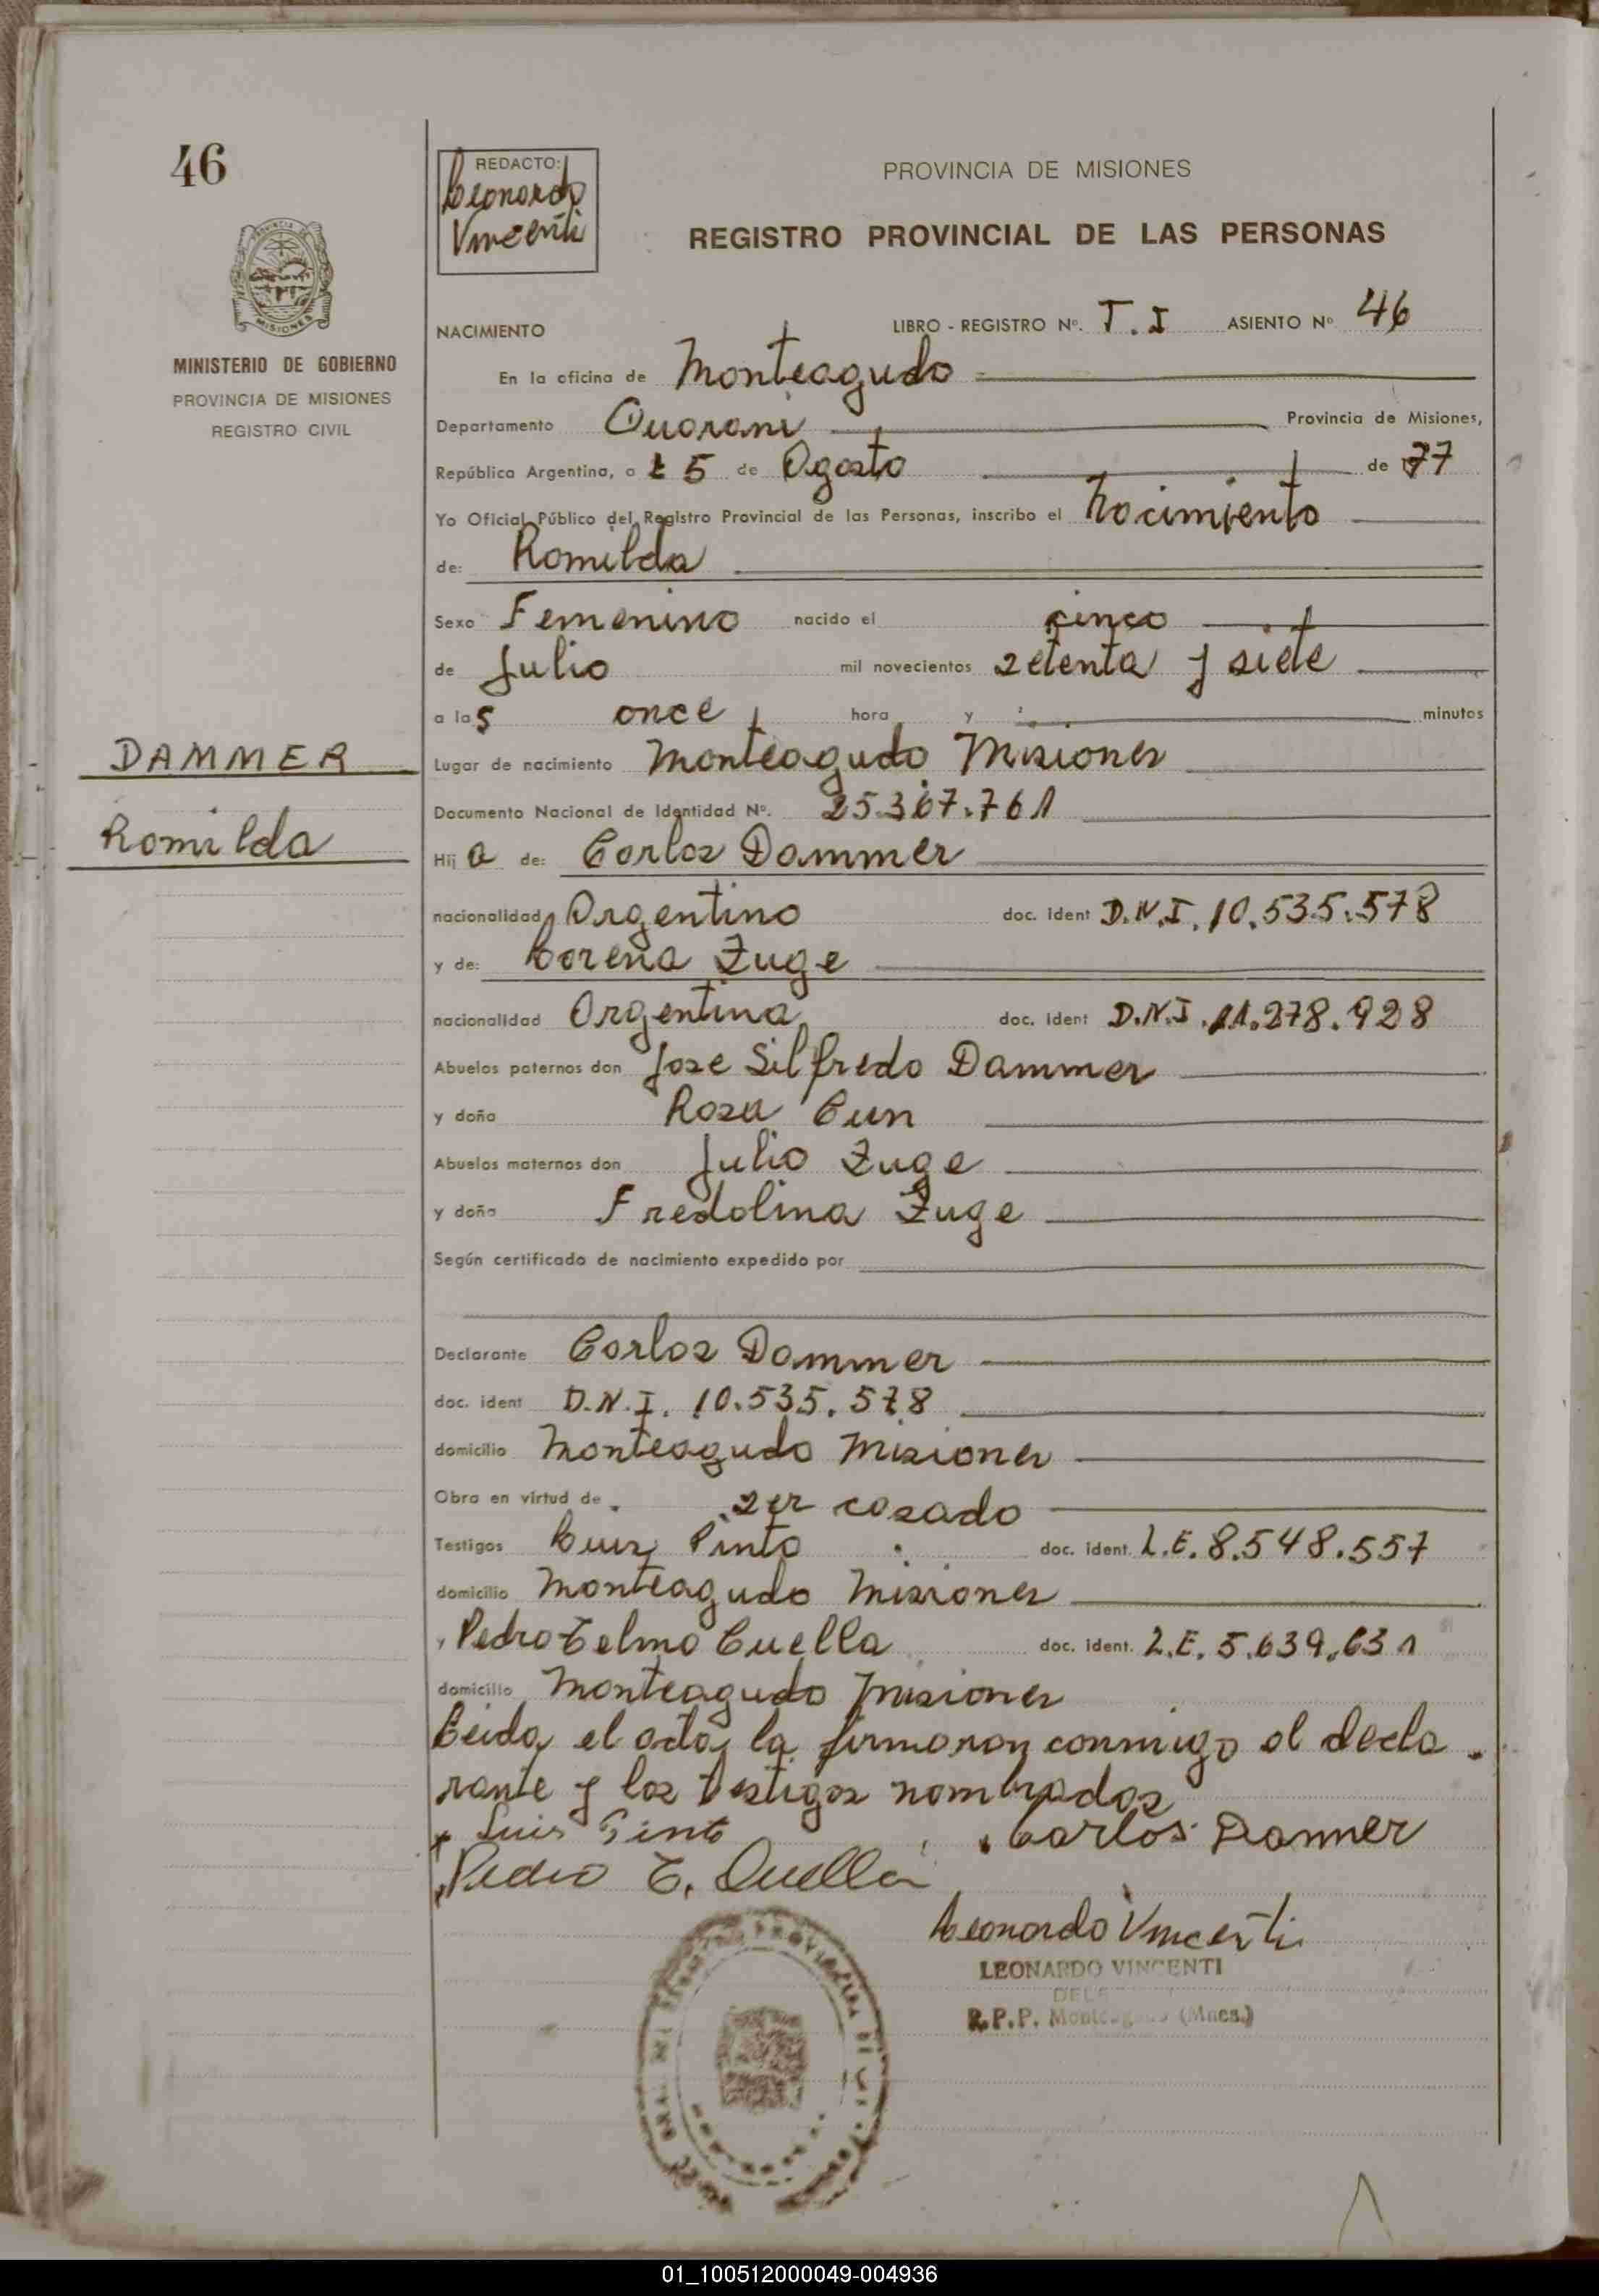 46
REDACTO:
Leonardo
Vincenti
PROVINCIA DE MISIONES
REGISTRO PROVINCIAL DE LAS PERSONAS
MINISTERIO DE GOBIERNO
PROVINCIA DE MISIONES
REGISTRO CIVIL
NACIMIENTO LIBRO - REGISTRO Nº. T. I ASIENTO Nº 46
En la oficina de Monteagudo
Departamento Guarani Provincia de Misiones,
República Argentina, a 5 de Agosto de 77
Yo Oficial Público del Registro Provincial de las Personas, inscribo el Nacimiento
de: Romilda
Sexo Femenino nacido el cinco
de Julio mil novecientos setenta y siete
a las once hora y minutos
Lugar de nacimiento Monteagudo Misiones
Documento Nacional de Identidad Nº. 25.367.761
DAMMER
Romilda
Hij a de: Carlos Dammer
nacionalidad Argentino doc. ident D.N.I. 10.535.578
y de: Lorena Zuge
nacionalidad Argentina doc. ident D.N.I. 11.278.928
Abuelos paternos don Jose Silfredo Dammer
y doña Rosa Cun
Abuelos maternos don Julio Zuge
y doña Fredolina Zuge
Según certificado de nacimiento expedido por
Declarante Carlos Dammer
doc. ident D.N.I. 10.535.578
domicilio Monteagudo Misiones
Obra en virtud de ser casado
Testigos Luis Pinto doc. ident. L.E. 8.548.557
domicilio Monteagudo Misiones
y Pedro Telmo Cuella doc. ident. L.E. 5.639.631
domicilio Monteagudo Misiones
Leida el acta la firmaran conmigo el decla
rante y los testigos nombrados
Luis Pinto Carlos Dammer
Pedro T.
Leonardo Vincenti
LEONARDO VINCENTI
R.P.P. (Mnes.)
01_100512000049-004936